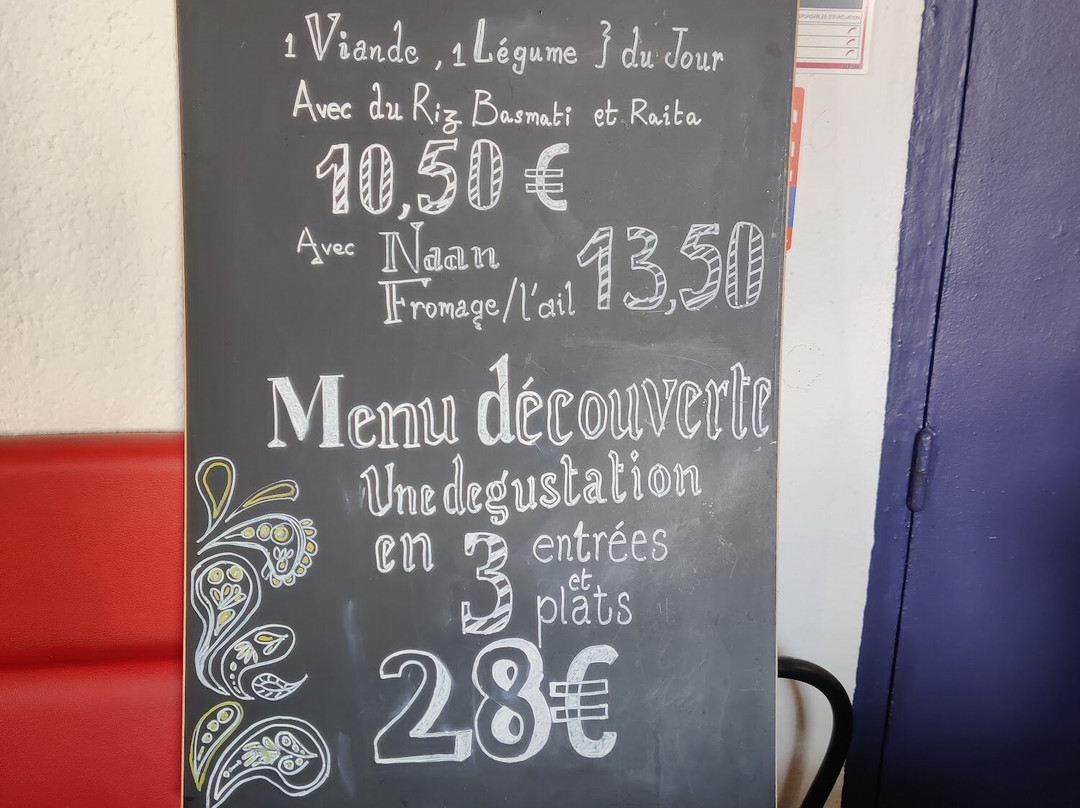 1 Viande , 1 Légume } du Jour
Avec du Riz Basmati et Raita
10,50 €
Avec Naan 13,50
Fromage/l'ail
Menu découverte
Une degustation
en 3 entrées
et
plats
28€